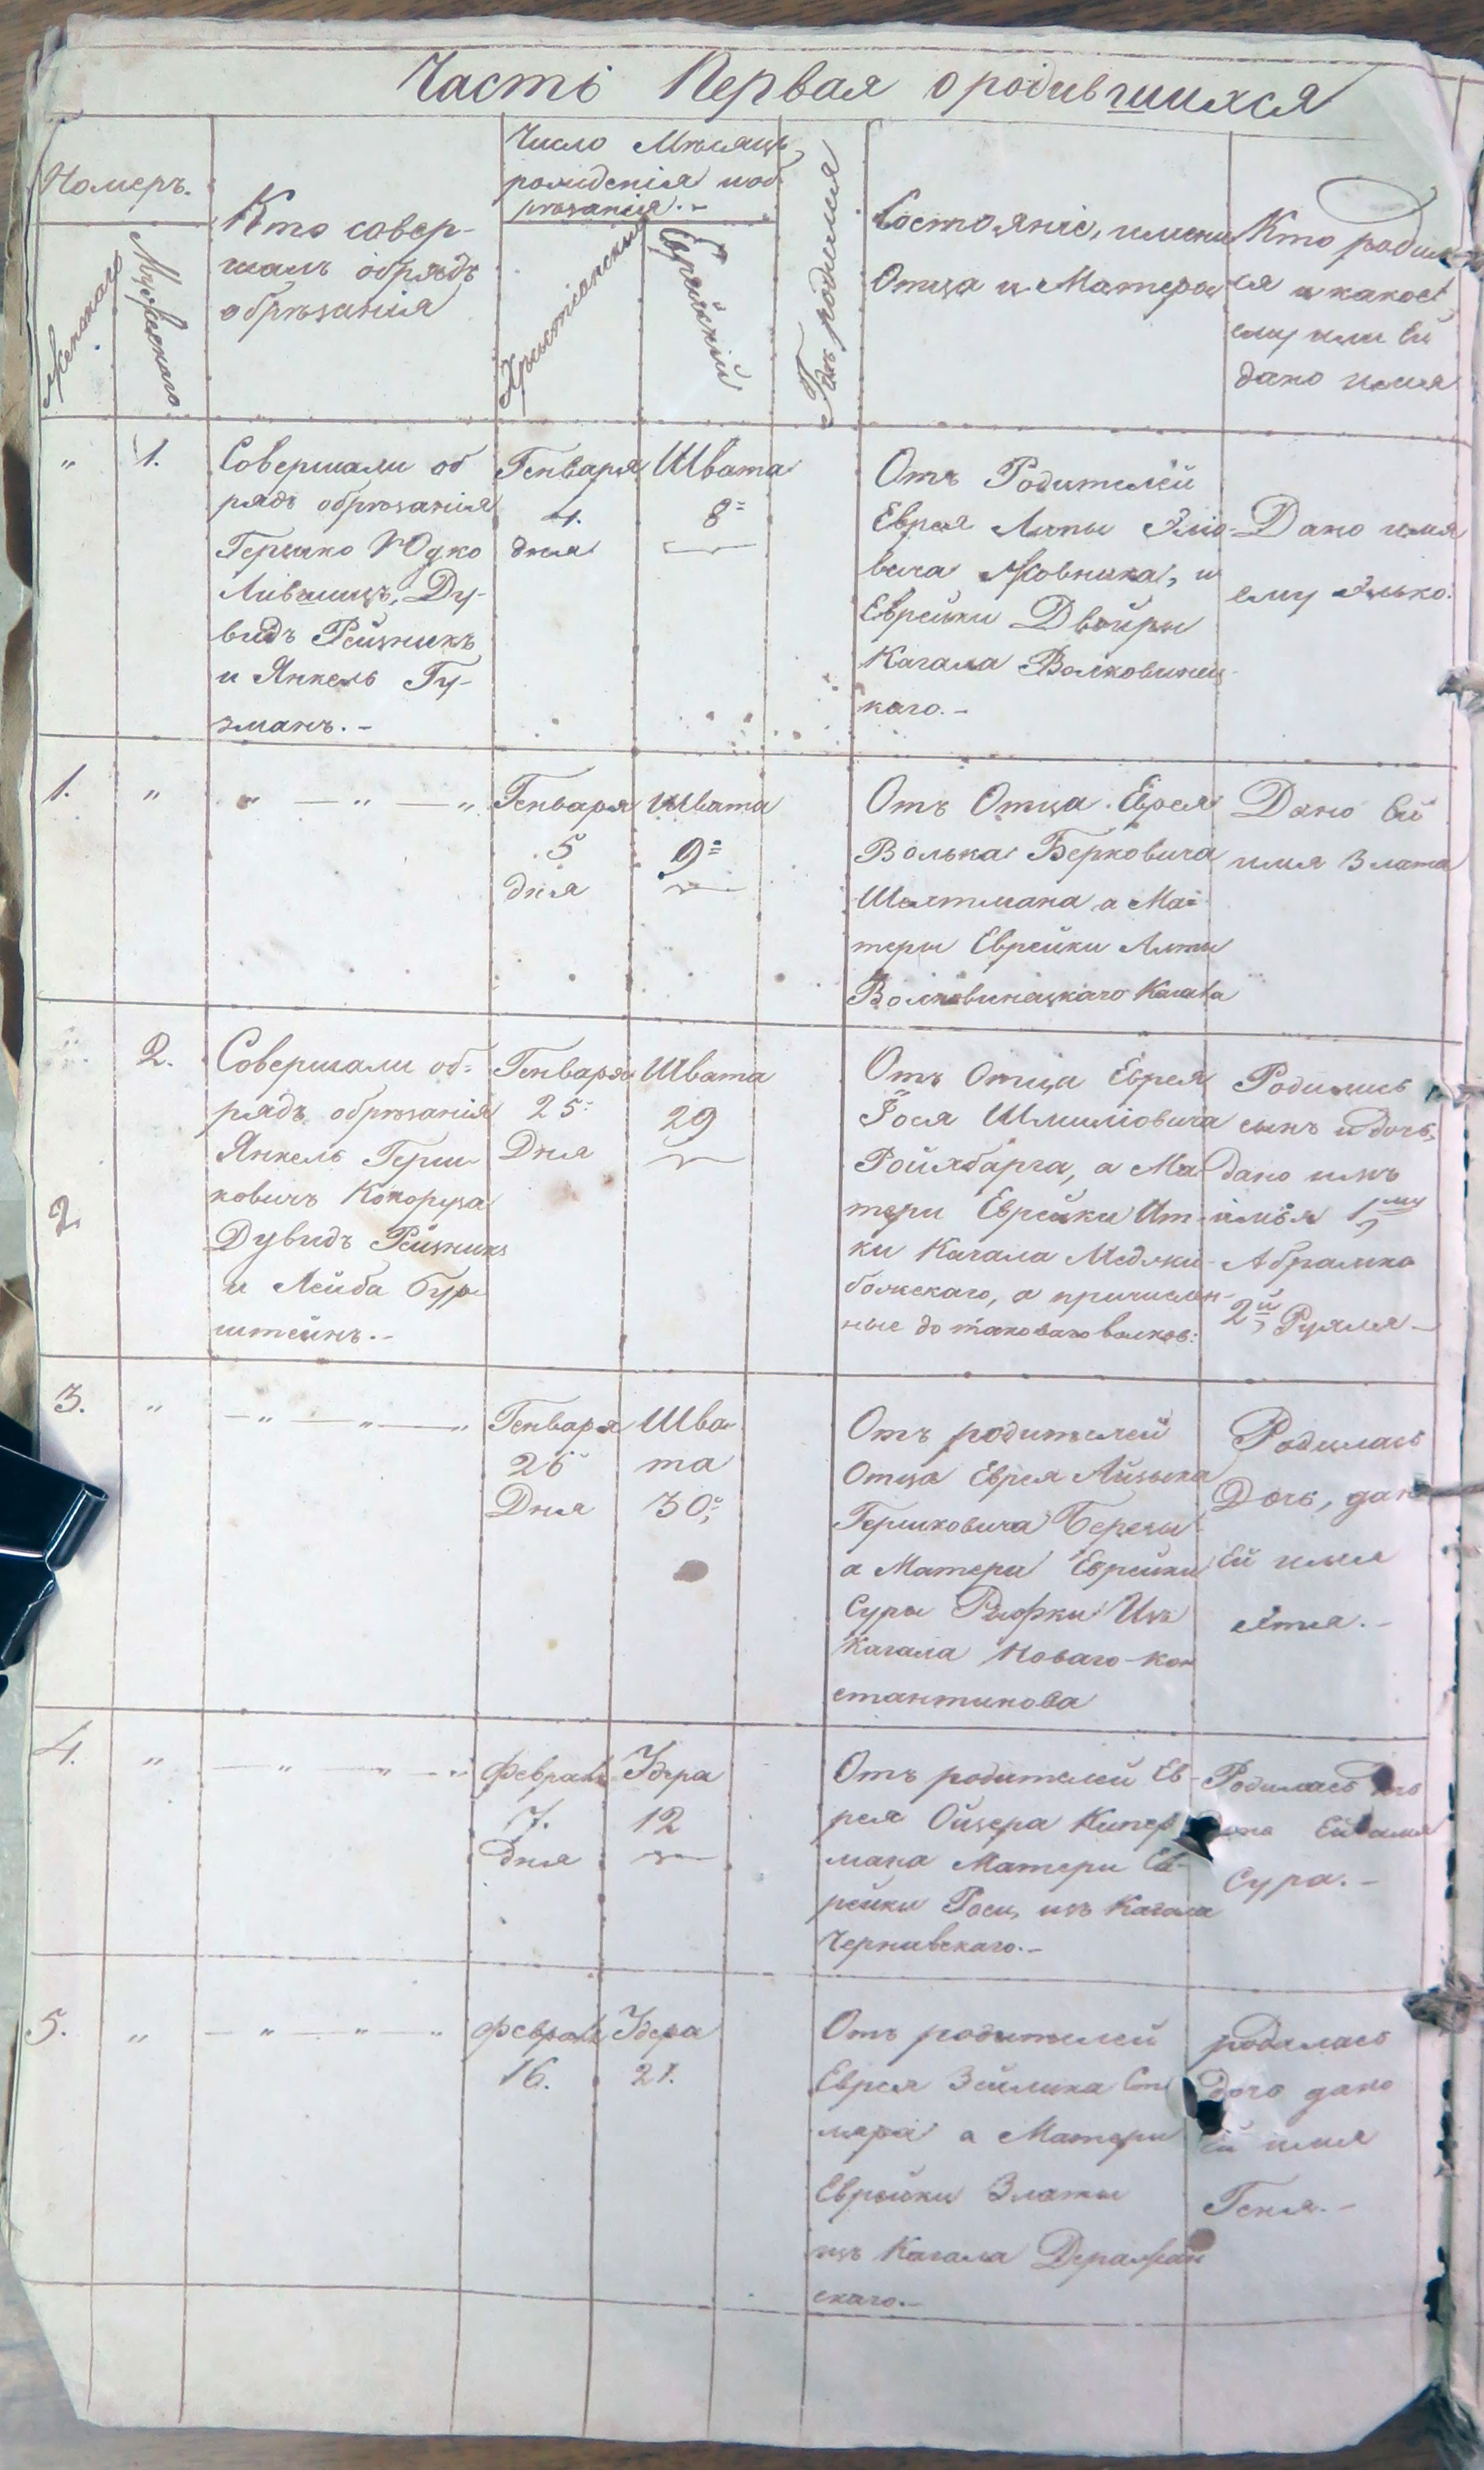 Часть Первая о родившихся
Номеръ.
Женскаго
Мужескаго
Кто совер-
шалъ обрядъ
обрѣзанія
Число Мѣсяцъ
рожденія и об
рѣзанія.-
Христіанскій
Еврейскій
Гдѣ родился
Состояніе, имена
Отца и Матери
Кто родил-
ся и какое
ему или Ей
дано имя
" 1.
Совершали об
рядъ обрѣзанія
Гершко Юдко
Лившицъ, Ду-
видъ Рейзникъ
и Янкель Гу-
зманъ.-
Генваря
4.
дня
Швата
8=
Отъ Родителей
Еврея Липы
вича Жовника, и
Еврейки Двойры
Кагала Волковинец-
каго.-
Дано имя
ему Элько.
1. "
" — " — "
Генваря
5
дня
Швата
9=
Отъ Отца Еврея
Волька Берковича
а Ма=
тери Еврейки
Волковинецкаго Кагала
Дано Ей
имя Злата
2.
2
Совершали об=
рядъ обрѣзанія
Янкель Герш-
ковичъ
Дувидъ Рейзникъ
и Лейба Бур-
штейнъ.-
Генваря
25
Дня
Швата
29
Отъ Отца Еврея
Іося Шмиліовича
Ройзбарга, а Ма
тери Еврейки Ит-
ки Кагала Меджи-
божскаго, а причислен-
ные до таковаго волков:
Родились
сынъ и дочь,
дано имъ
имя 1му
Абрамко
2й Рухля-
3. "
— " — " — "
Генваря
26
Дня
Шва-
та
30
Отъ родителей
Отца Еврея Айзыка
Гершковича Березы
а Матери Еврейки
Суры Рыфки Изъ
Кагала Новаго-кон
стантинова
Родилась
Дочь, дано
Ей имя
.-
4. "
— " — " — "
Феврал
7.
дня
Удера
12
Отъ родителей Ев-
рея Ойзера Кипер
мана Матери Ев-
рейки Роси, изъ Кагала
Чернявскаго.-
Родилась
Ей имя
Сура.-
5. "
— " — " — "
Феврал
16.
Удера
21.
Отъ родителей
Еврея Зейлика
ляра а Матери
Еврейки Златы
изъ Кагала Деражан
скаго.-
родилась
дочь дано
Ей имя
Геня.-